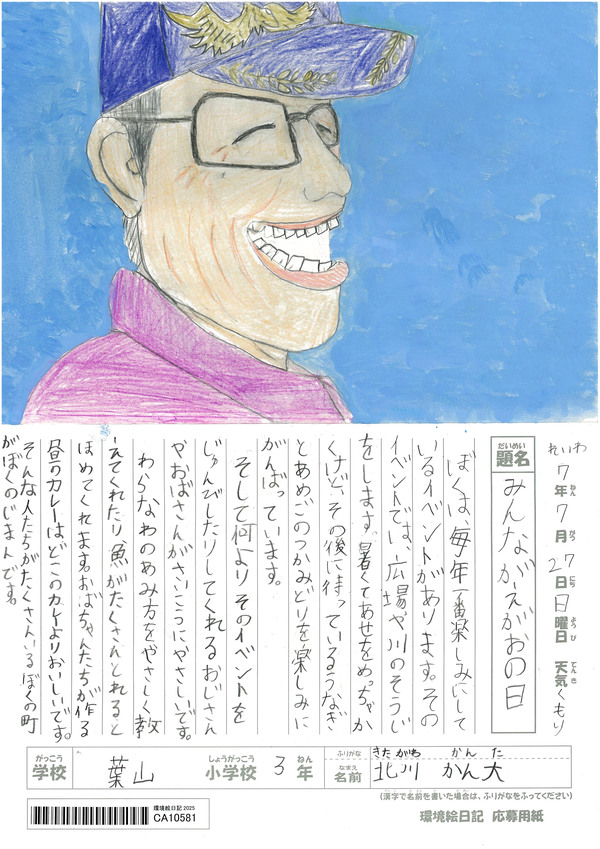 れいわ
7年7月27日日曜日 天気くもり
ねん がつ にち ようび てんき
だいめい
題名
みんながえがおの日
ぼくは、毎年一番楽しみにして
いるイベントがあります。その
イベントでは、広場や川のそうじ
をします。暑くてあせをめっちゃか
くけど、その後に待っているうなぎ
とあめごのつかみどりを楽しみに
がんばっています。
そして何よりそのイベントを
じゅんびしたりしてくれるおじさん
やおばさんがさいこうにやさしいです。
わらなわのあみ方をやさしく教
えてくれたり魚がたくさんとれると
ほめてくれます。おばちゃんたちが作る
昼のカレーはどこのカレーよりおいしいです。
そんな人たちがたくさんいるぼくの町
がぼくのじまんです。
がっこう しょうがっこう ねん ふりがな きたがわ かんた
学校 葉山 小学校 3年 なまえ 名前 北川 かん大
(漢字で名前を書いた場合は、ふりがなをふってください)
環境絵日記 2025
CA10581
環境絵日記 応募用紙